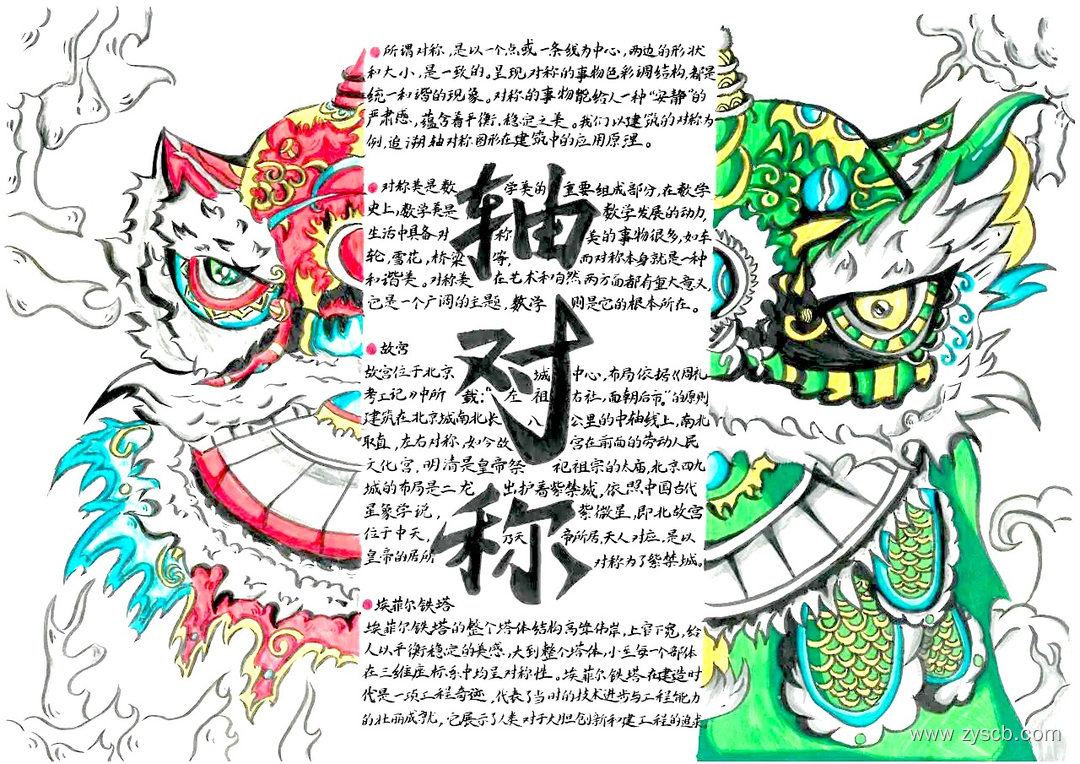 所谓对称，是以一个点或一条线为中心，两边的形状
和大小，是一致的。呈现对称的事物色彩调结构，都是
统一和谐的现象。对称的事物能给人一种“安静”的
严肃感，蕴含着平衡、稳定之美。我们以建筑的对称为
例，追溯轴对称图形在建筑中的应用原理。
轴对称
对称美是数学美的重要组成部分，在数学
史上，数学美是数学发展的动力，
生活中具备对称美的事物很多，如车
轮，雪花，桥梁等，而对称本身就是一种
和谐美。对称美在艺术和自然两方面都有重大意义，
它是一个广阔的主题，数学则是它的根本所在。
故宫
故宫位于北京城中心，布局依据《周礼
考工记》中所载：“左祖右社，面朝后市。”的原则
建筑在北京城南北长八公里的中轴线上，南北
取直，左右对称，如今故宫在前面的劳动人民
文化宫，明清是皇帝祭祀祖宗的太庙，北京四九
城的布局是二龙出护着紫禁城，依照中国古代
星象学说，紫微星，即北故宫
位于中天，乃天帝所居，天人对应，是以
皇帝的居所对称为了紫禁城。
埃菲尔铁塔
埃菲尔铁塔的整个塔体结构高耸伟岸，上窄下宽，给
人以平衡稳定的美感，大到整个塔体，小至每一个部体
在三维座标系中均呈对称性。埃菲尔铁塔在建造时
代是一项工程奇迹，代表了当时的技术进步与工程能力
的壮丽成就，它展示了人类对于大胆创新和建工程的追求
www.zyscb.com